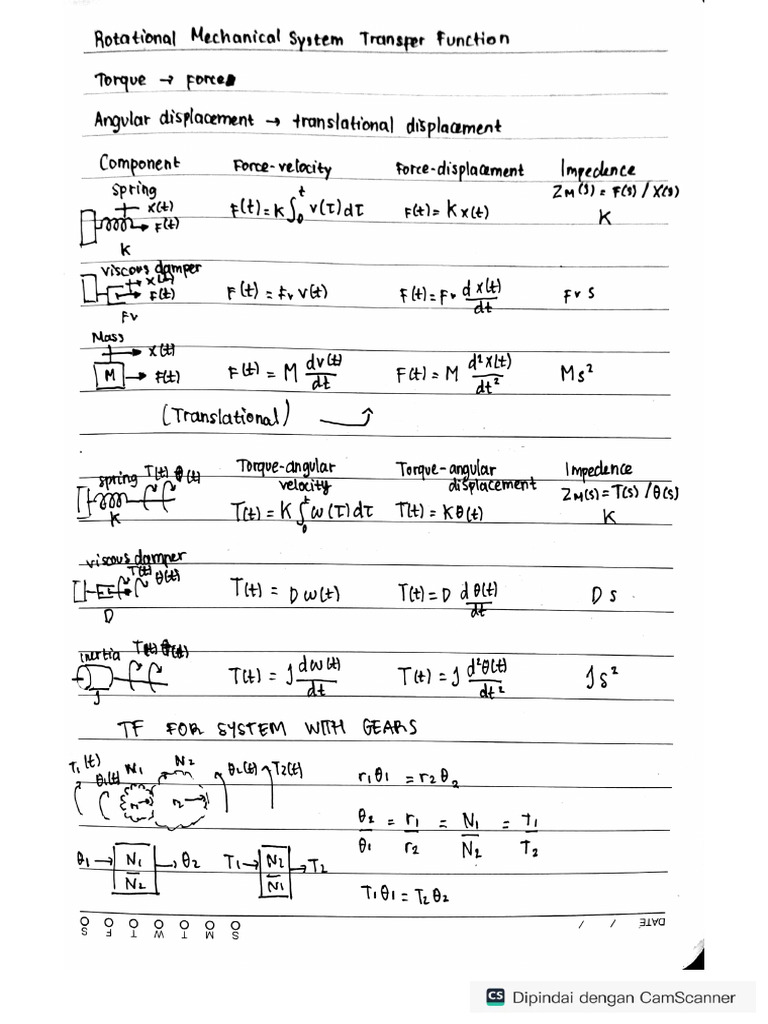 Rotational Mechanical System Transfer Function
Torque → Force
Angular displacement → translational displacement
Component Force-velocity Force-displacement Impedence
Spring ZM(s) = F(s) / X(s)
X(t) F(t) K F(t) = K ∫₀ᵗ v(τ) dτ F(t) = K x(t) K
viscous damper
X(t) F(t) Fv F(t) = Fv v(t) F(t) = Fv dx(t)/dt Fv s
Mass
X(t) M F(t) F(t) = M dv(t)/dt F(t) = M d²x(t)/dt² Ms²
(Translational)
Torque-angular velocity Torque-angular displacement Impedence
spring T(t) θ(t) ZM(s) = T(s) / θ(s)
K T(t) = K ∫₀ᵗ ω(τ) dτ T(t) = Kθ(t) K
viscous damper
T(t) θ(t) D T(t) = D ω(t) T(t) = D dθ(t)/dt D s
inertia T(t) θ(t)
J T(t) = J dω(t)/dt T(t) = J d²θ(t)/dt² J s²
TF FOR SYSTEM WITH GEARS
T₁(t) θ₁(t) N₁ N₂ θ₂(t) T₂(t) r₁ r₂
r₁θ₁ = r₂θ₂
θ₂/θ₁ = r₁/r₂ = N₁/N₂ = T₁/T₂
θ₁ → N₁/N₂ → θ₂ T₁ → N₂/N₁ → T₂
T₁θ₁ = T₂θ₂
S F T W T M S
DATE / /
CS Dipindai dengan CamScanner